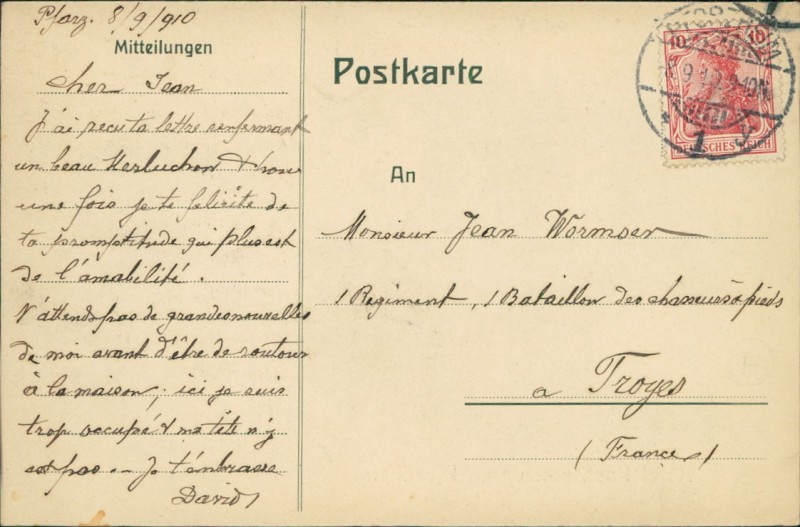 Pforz. 8/9/910
Mitteilungen
Cher Jean
J'ai reçu ta lettre renfermant
un beau
une fois je te félicite de
ta promptitude qui plus est
de l'amabilité.
N'attends pas de grandes nouvelles
de moi avant d'être de retour
à la maison; ici je suis
trop occupé & ma tête n'y
est pas. — Je t'embrasse
David
Postkarte
10 10
DEUTSCHES REICH
1
An
Monsieur Jean Wormser
1 Régiment, 1 Bataillon des chasseurs à pieds
a Troyes
(France)